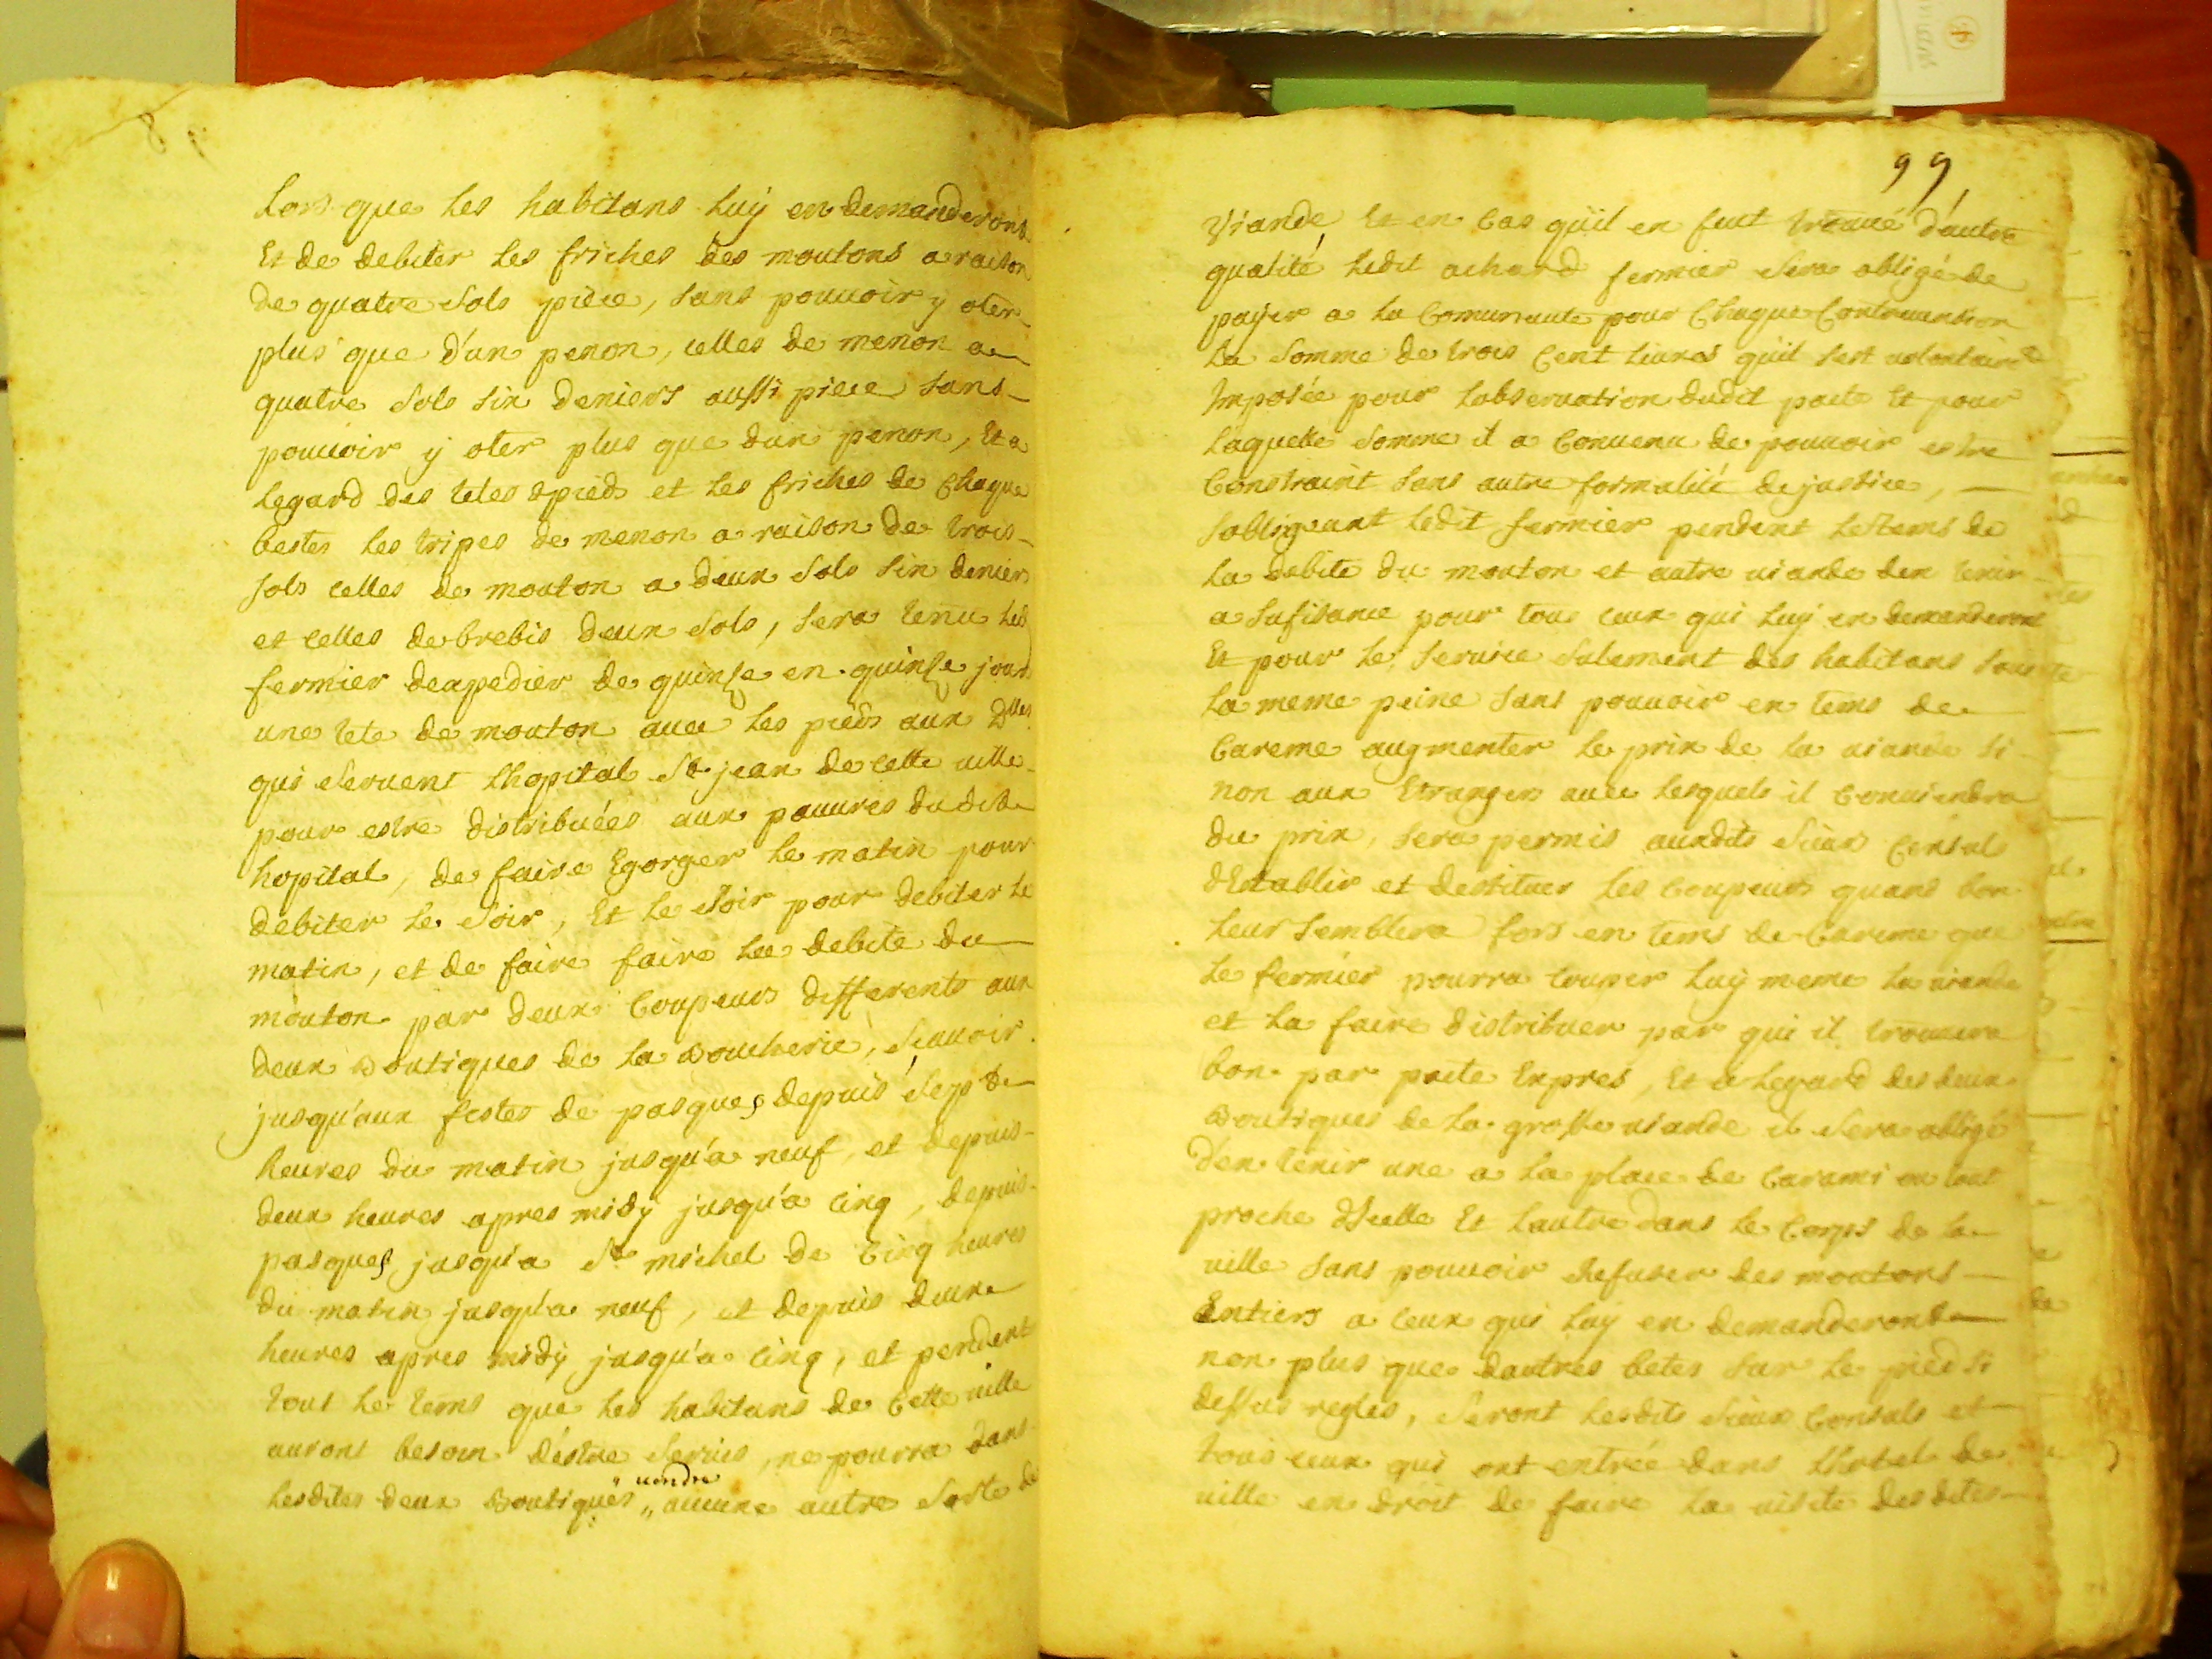 Lors que les habitans luy en demanderont
Et de debiter les friches des moutons a raison
de quatre sols piece, sans pouuoir y oter
plus que d'un penon, celles de menon a
quatre sols six deniers aussi piece sans
pouuoir y oter plus que dun penon, Et a
legard des tetes & pieds et les friches de chaque
bestes les tripes de menon a raison de trois
sols celles de mouton a deux sols six deniers
et celles de brebis deux sols, sera tenu led
fermier deapedier de quinse en quinse jours
une tete de mouton auec les pieds aux Dlles
qui seruent lhopital St jean de cette uille
pour estre distribuées aux pauures dudit
hopital, de faire Egorger le matin pour
debiter le soir, Et le soir pour debiter le
matin, et de faire faire la debite du
mouton par deux Coupeurs differents aux
deux Boutiques de la Boucherie, scauoir
jusqu'aux festes de pasques depuis sept
heures du matin jusqu'a neuf, et depuis
deux heures apres midy jusqu'a cinq, depuis
pasques jusqu'a St michel de Cinq heures
du matin jusqu'a neuf, et depuis deux
heures apres midy jusqu'a cinq, et pendent
tout le tems que les habitans de Cette uille
auront besoin d'estre seruis, ne pourra dans
lesdites deux Boutiques "uendre" aucune autre sorte de
99
Viande Et en Cas qu'il en feut trouué d'autre
qualité ledit achard fermier sera obligé de
payer a la Comunauté pour Chaque Contrauantion
la somme de trois Cent liures qu'il sest uolontairt
Imposée pour lobseruation dudit pacte Et pour
laquelle somme il a Conuenu de pouuoir estre
Constraint sans autre formalité de justice,
sobligeant ledit fermier pendent le tems de
la debite du mouton et autre uiande den tenir
a sufisance pour tous ceux qui luy en demanderont
Et pour le seruice sulement des habitans sous
la meme peine sans pouuoir en tems de
Careme augmenter le prix de la uiande si
non aux Etrangers auec lesquels il Conuiendra
du prix, sera permis auxdits sieurs Consuls
d'Establir et destituer les Coupeurs quans bon
leur semblera fors en tems de Careme que
le fermier pourra couper luy meme la uiande
et la faire distribuer par qui il trouuera
bon par pacte Expres, Et a legard des deux
Boutiques de la grosse uiande il sera obligé
d'en tenir une a la place de Carami ou tout
proche d'Icelle Et lautre dans le Corps de la
uille sans pouuoir Refuser des moutons
Entiers a ceux qui luy en demanderont
non plus que dautres betes sur le pied si
dessus regles, seront lesdits sieurs Consuls et
tous ceux qui ont entrée dans lhotel de
uille en droit de faire la uisite desdites